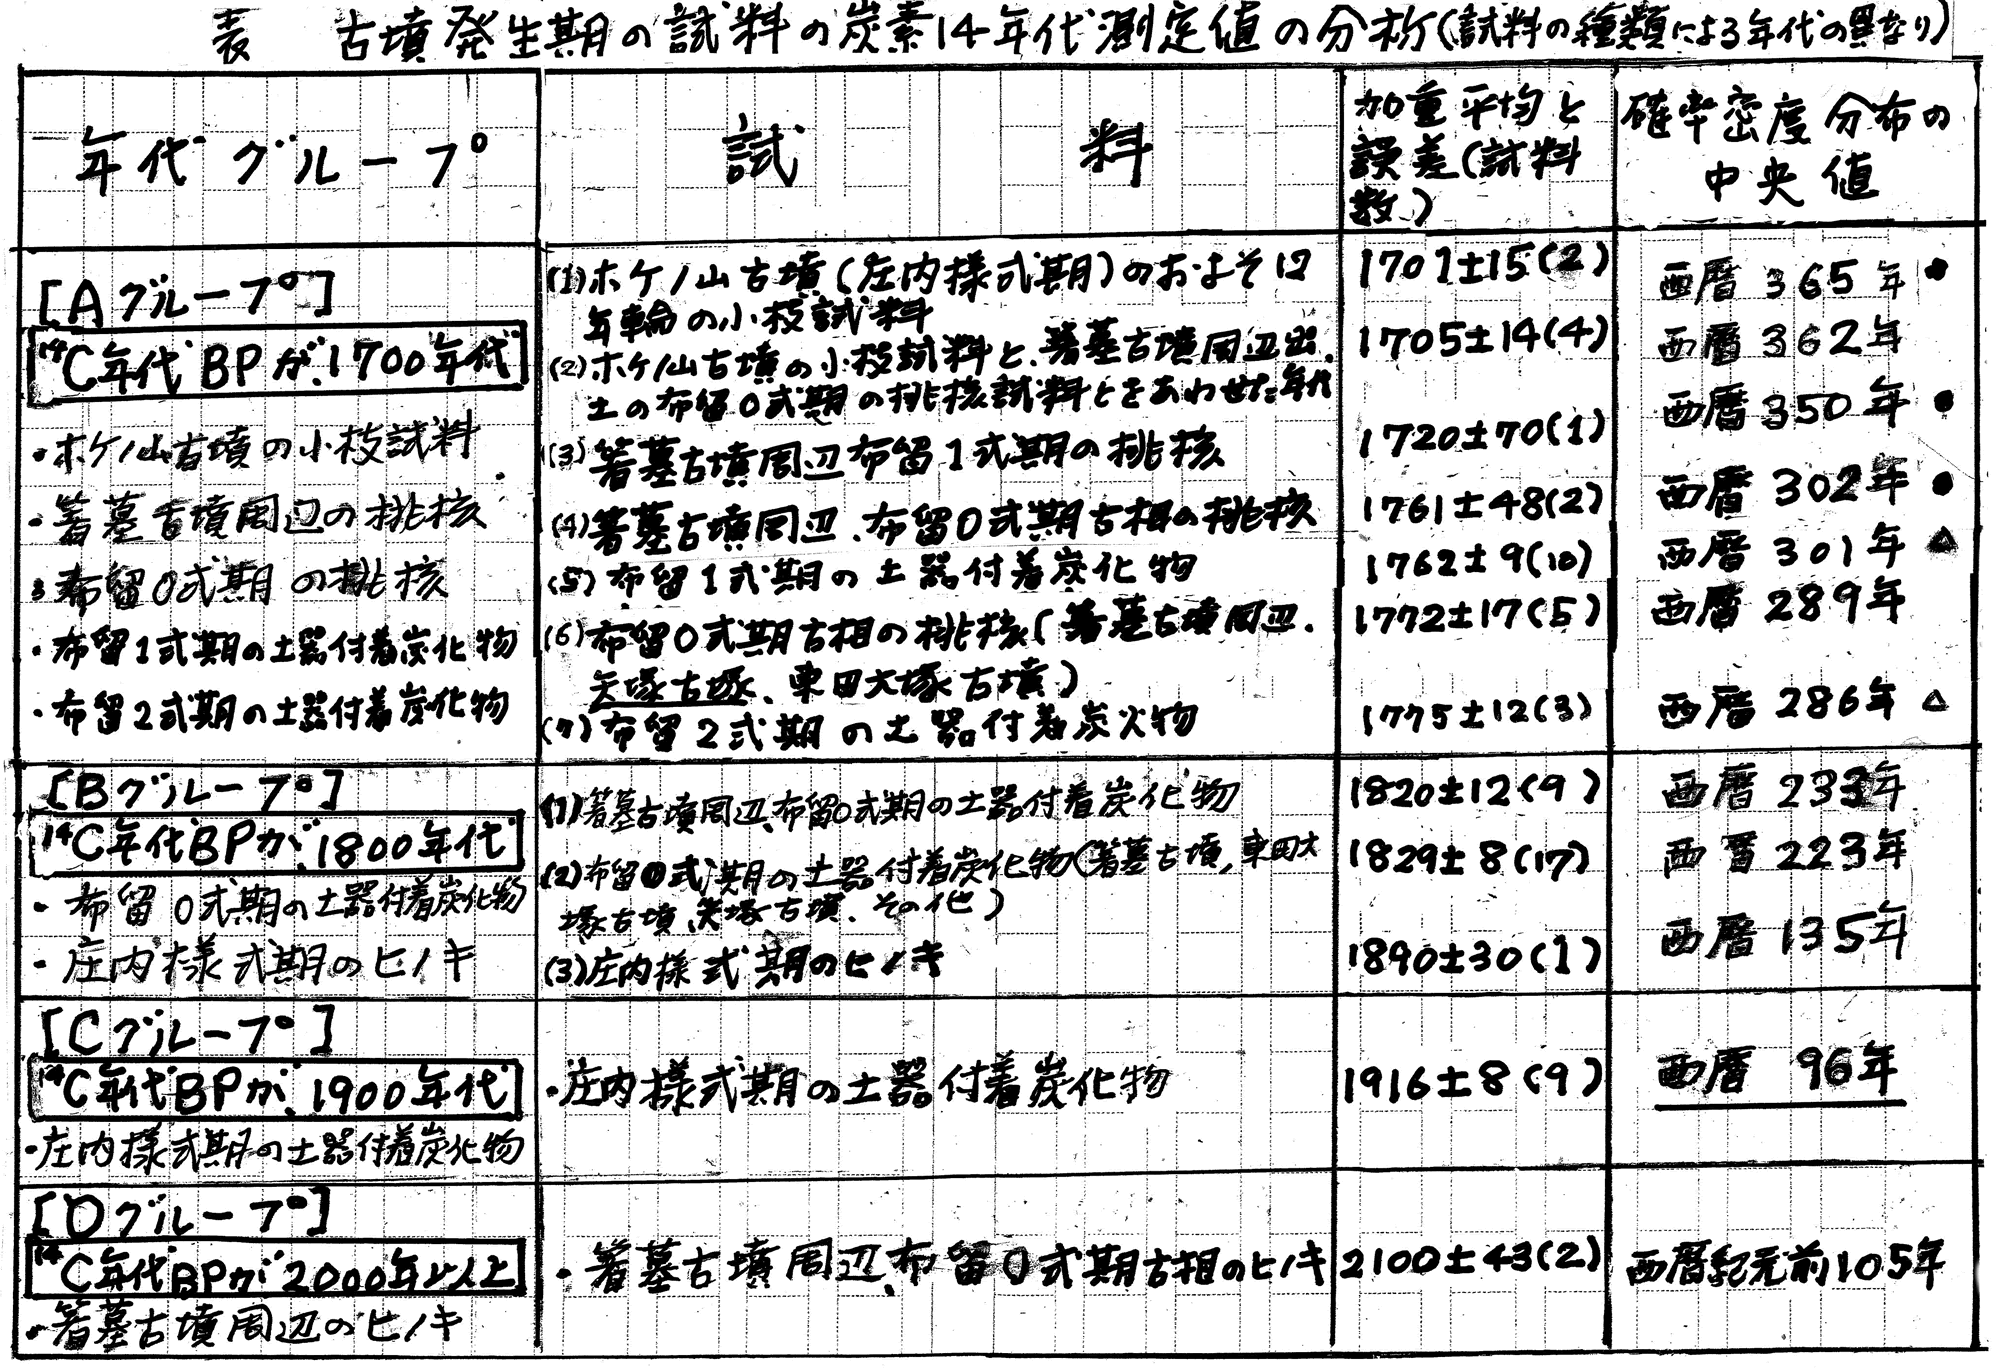 表　古墳発生期の試料の炭素14年代測定値の分析(試料の種類による年代の異なり)
年代グループ
試　料
加重平均と
誤差(試料
数)
確率密度分布の
中央値
[Aグループ]
¹⁴C年代BPが、1700年代
・ホケノ山古墳の小枝試料
・箸墓古墳周辺の桃核
布留0式期の桃核
・布留1式期の土器付着炭化物
・布留2式期の土器付着炭化物
(1)ホケノ山古墳(庄内様式期)のおよそ12
年輪の小枝試料
(2)ホケノ山古墳の小枝試料と、箸墓古墳周辺出
土の布留0式期の桃核試料とをあわせた年代
(3)箸墓古墳周辺布留1式期の桃核
(4)箸墓古墳周辺、布留0式期古相の桃核
(5)布留1式期の土器付着炭化物
(6)布留0式期古相の桃核(箸墓古墳周辺、
矢塚古墳、東田大塚古墳)
(7)布留2式期の土器付着炭火物
1701±15(2)
1705±14(4)
1720±70(1)
1761±48(2)
1762±9(10)
1772±17(5)
1775±12(3)
西暦365年●
西暦362年
西暦350年●
西暦302年●
西暦301年△
西暦289年
西暦286年△
[Bグループ]
¹⁴C年代BPが、1800年代
・布留0式期の土器付着炭化物
・庄内様式期のヒノキ
(1)箸墓古墳周辺、布留0式期の土器付着炭化物
(2)布留0式期の土器付着炭化物(箸墓古墳,東田大
塚古墳、矢塚古墳、その他)
(3)庄内様式期のヒノキ
1820±12(9)
1829±8(17)
1890±30(1)
西暦233年
西暦223年
西暦135年
[Cグループ]
¹⁴C年代BPが、1900年代
・庄内様式期の土器付着炭化物
・庄内様式期の土器付着炭化物
1916±8(9)
西暦 96年
[Dグループ]
¹⁴C年代BPが2000年以上
・箸墓古墳周辺のヒノキ
・箸墓古墳周辺、布留0式期古相のヒノキ
2100±43(2)
西暦紀元前105年